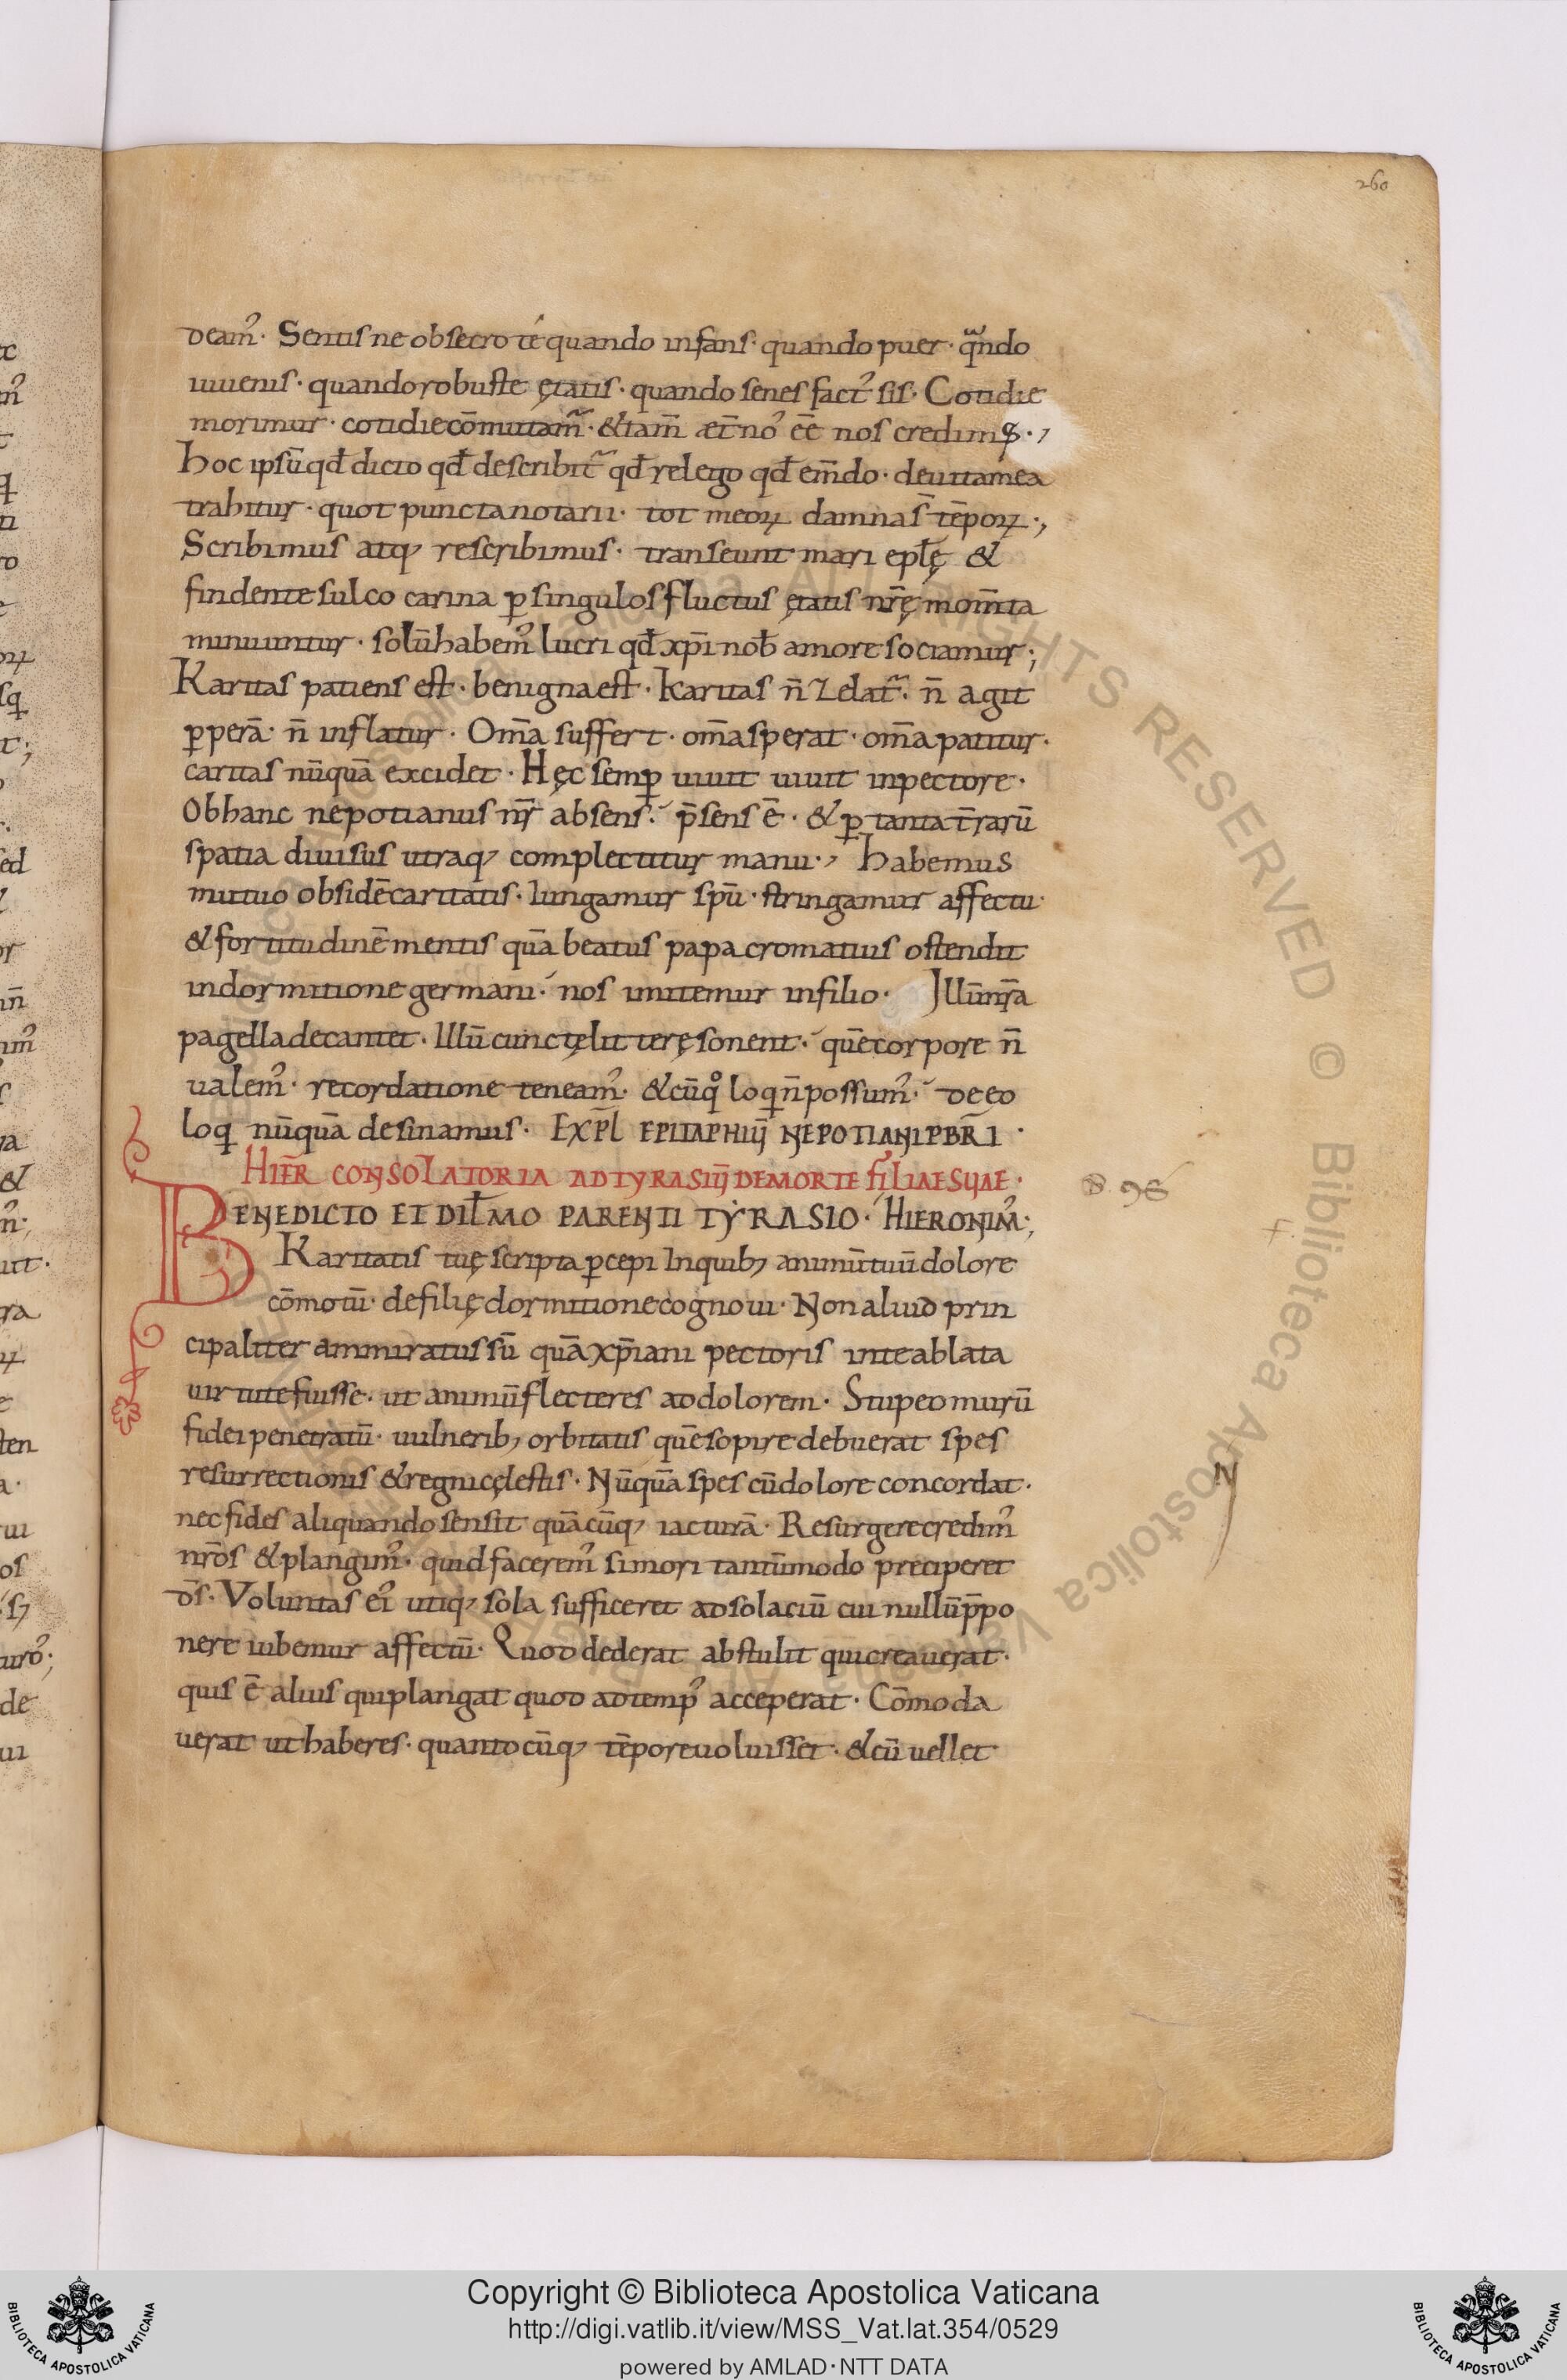 260
deam᷒· Sentis ne obsecro té quando infans· quando puer· qͣndo
iuuenis· quando robuste ętatis· quando senes fact᷒ sis· Cotidie
morimur· cotidie cōmutam̄· & tam̄ æt̄no᷒ ēē nos credim᷒·,
hoc ipsū qđ dicto qđ describit̄ qđ relego qđ em̄do· de uita mea
trahitur· quot puncta notarii· tot meoꝝ damna s̄ tēpoꝝ·,
Scribimus atq, rescribimus· transeunt mari epl̄ę &
findente sulco carina ꝑ singulos fluctus ętatis nr̄ę mom̄ta
minuuntur· solū habem᷒ lucri qđ xp̄i nob̄ amore sociamur;
Karitas patiens est· benigna est· karitas n̄ zelat̄· n̄ agit
ꝑperā· n̄ inflatur· Om̄a suffert· om̄a sperat· om̄a patitur·
caritas nūquā excidet· Hęc semꝑ uiuit uiuit in pectore·
Ob hanc nepotianus nr̄ absens· p̄sens ē· & ꝑ tanta t̄rarū
spatia diuisus utraq, complectitur manu·, habemus
mutuo obsidē caritatis· Iungamur sp̄u· stringamur affectu·
& fortitudinē mentis quā beatus papa cromatius ostendit
in dormitione germani· nos imitemur in filio· Illū nr̄a
pagella decantet· Illū cunctę litterę sonent· quē corpore n̄
ualem᷒· recordatione teneam᷒· & cū qͦ loqͥ n̄ possum᷒· de eo
loqͥ nūquā desinamus· EXPL̄ EPITAPHIŪ NEPOTIANI PBR̄I·
HIER̄ CONSOLATORIA AD TYRASIŪ DE MORTE FILIAE SUAE·
BENEDICTO ET DIL̄MO PARENTI TYRASIO· HIERONIM᷒·,
Karitatis tuę scripta ꝑcepi In quib, animū tuū dolore
cōmotū· de filię dormitione cognoui· Non aliud prin
cipaliter ammiratus sū quā xp̄iani pectoris in te ablata
uirtute fuisse· ut animū flecteres ad dolorem· Stupeo murū
fidei penetratū· uulnerib, orbitatis quē sopire debuerat spes
resurrectionis & regni cęlestis· Nūquā spes cū dolore concordat·
nec fides aliquando sensit quācūq, iacturā· Resurgere credim᷒
nr̄os & plangim᷒· quid facerem᷒ si mori tantūmodo preciperet
d̄s· Voluntas ei᷒ utiq, sola sufficeret ad solaciū cui nullū p̄po
nere iubemur affectū· Quod dederat abstulit qui creauerat·
quis ē alius qui plangat quod ad temp᷒ acceperat· Cōmoda
uerat ut haberes· quantocūq, tēpore uoluisset· & cū uellet
Copyright © Biblioteca Apostolica Vaticana
http://digi.vatlib.it/view/MSS_Vat.lat.354/0529
powered by AMLAD·NTT DATA